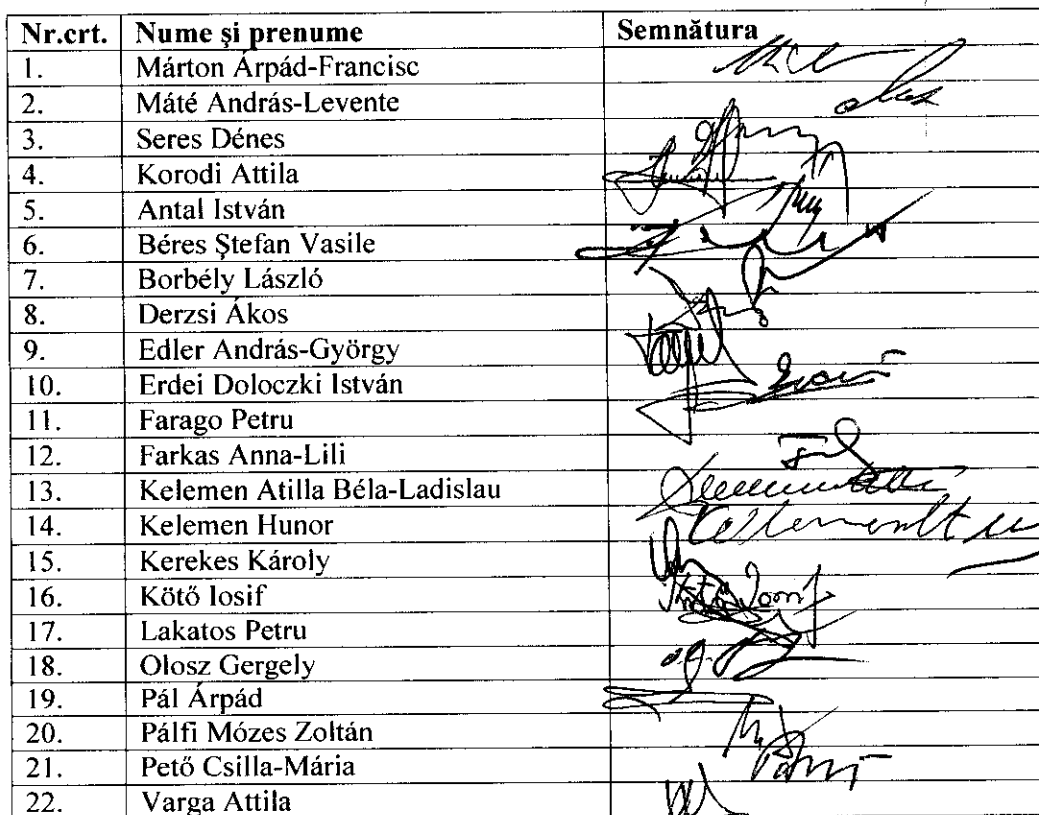 Nr.crt. Nume şi prenume Semnătura
1. Márton Árpád-Francisc
2. Máté András-Levente
3. Seres Dénes
4. Korodi Attila
5. Antal István
6. Béres Ştefan Vasile
7. Borbély László
8. Derzsi Ákos
9. Edler András-György
10. Erdei Doloczki István
11. Farago Petru
12. Farkas Anna-Lili
13. Kelemen Atilla Béla-Ladislau
14. Kelemen Hunor
15. Kerekes Károly
16. Kötő Iosif
17. Lakatos Petru
18. Olosz Gergely
19. Pál Árpád
20. Pálfi Mózes Zoltán
21. Pető Csilla-Mária
22. Varga Attila